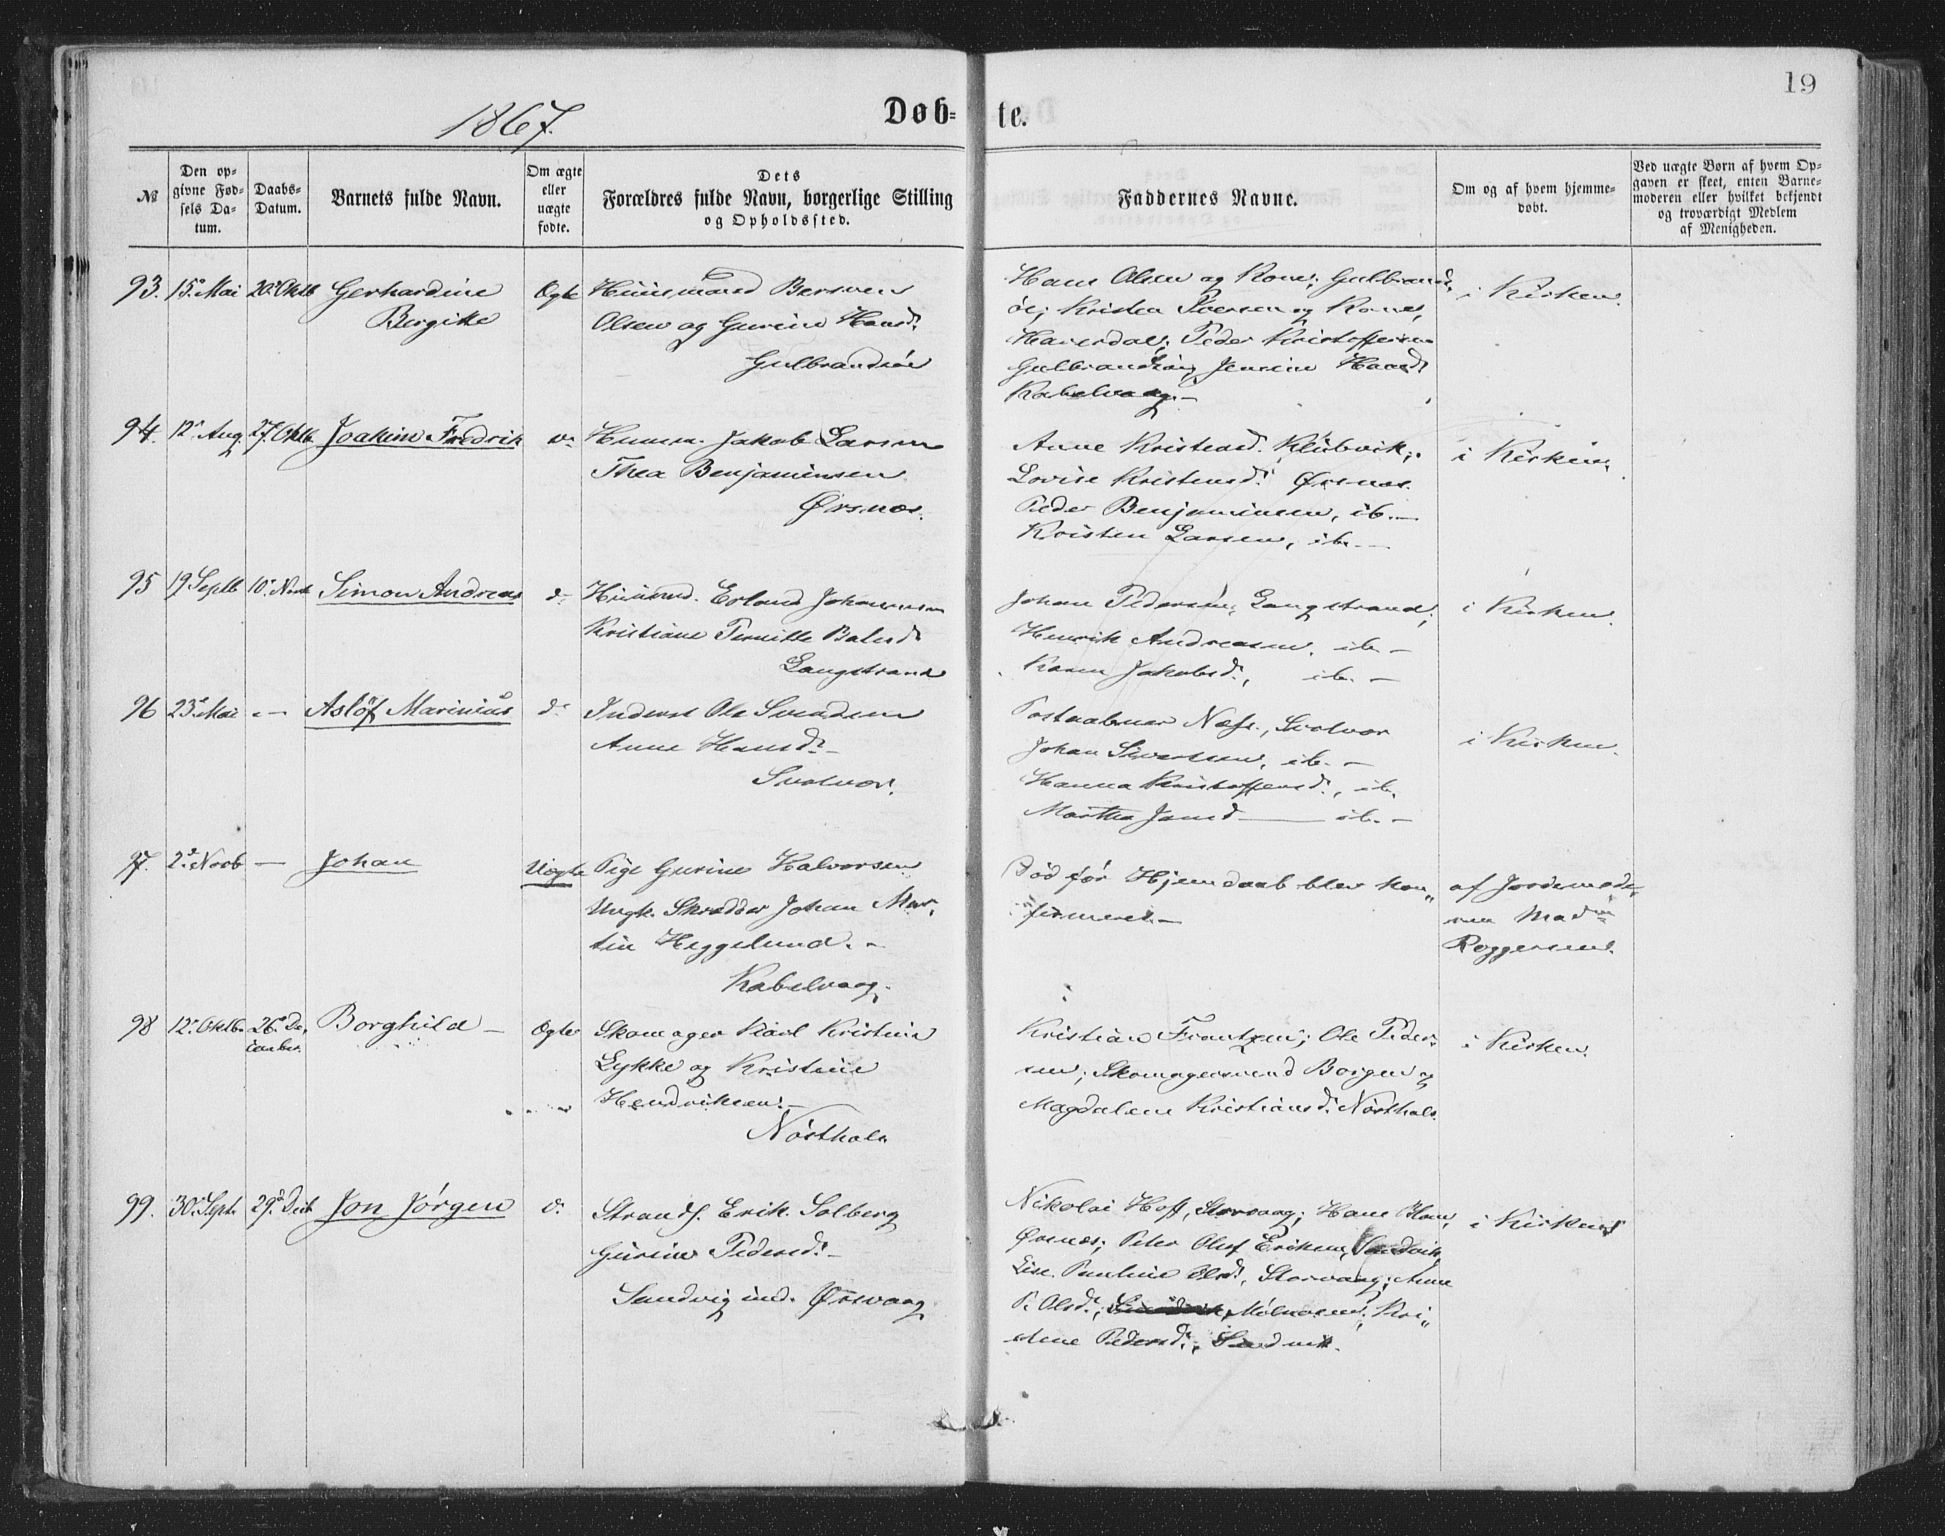 19
1867.
Døb- te.
№
Den opgivne Fødsels Datum.
Daabs-Datum.
Barnets fulde Navn.
Om ægte eller uægte fødte.
Dets Forældres fulde Navn, borgerlige Stilling og Opholdssted.
Faddernes Navne.
Om og af hvem hjemmedøbt.
Ved uægte Børn af hvem Opgaven er skeet, enten Barnemoderen eller hvilket bekjendt og troværdigt Medlem af Menigheden.
93. 15. Mai 20. Oktb Gerhardine Ægte Huusmand Bersven
Bergitte Olsen og Gurine Hansd.
Gulbrandsöe
Hans Olsen og Kone; Gulbrands
öe; Kristen Iversen og Kone,
Peder Kristoffersen
Gulbrandsöe; Jensine Hansd.
Kabelvaag.
i Kirken.
94. 12. Aug. 27. Oktb. Joakim Fredrik Jakob Larsen
Thea Benjaminsen
Ørsnæs.
Anne Kristensd.
Lovise Kristensd. Ørsnæs.
Peder Benjaminsen, ib.
Kristen Larsen, ib.
i Kirken.
95 19 Septb 10. Novb Simon Andreas d. Erland Johannesen
Kristiane Pernille
Langstrand
Johan Pedersen, Langstrand;
Henrik Andreasen, ib.
Karen Jakobsd., ib.
i Kirken.
96 23. Mai Asløf Marinius d. Inderst Ole Svendsen
Anne Hansd.
Svolvær.
Postaabner Næss, Svolvær
Johan Sivertsen, ib.
Hanna Kristoffersd., ib.
Martha Jansd ib.
i Kirken.
97. 2. Novb Johan Uægte Pige Gurine Halvorsen
Ungk. Skrædder Johan Mar-
tin Heggelund.
Kabelvaag.
Död för Hjemdaab blev kon„
firmeret.
af Jordemode-
ren Madm
Roggersen.
98 12. Oktb. 26. De- Borghild Ægte Skomager Karl Kristian
cember
Lykke og Kristine
Hendriksen.
Nösthals
Kristian Frantzen; Ole Peder-
sen; Skomagersvend Borgen og
Magdalene Kristiansd. Nösthals.
i Kirken.
99. 30. Sept. 29. Decb Jon Jörgen d. Strands. Erik Solberg
Gurine Pedersd.
Sandvig ind. Ørsvaag
Nikolai Hoff, Storvaag; Hans
Ørsnæs; Peter Olof Eriksen, Sandvik
Lise Pauline Olsd., Storvaag; Anne
P. Olsd., Mölnosen; Kri„
stine Pedersd., Sandvik.
i Kirken